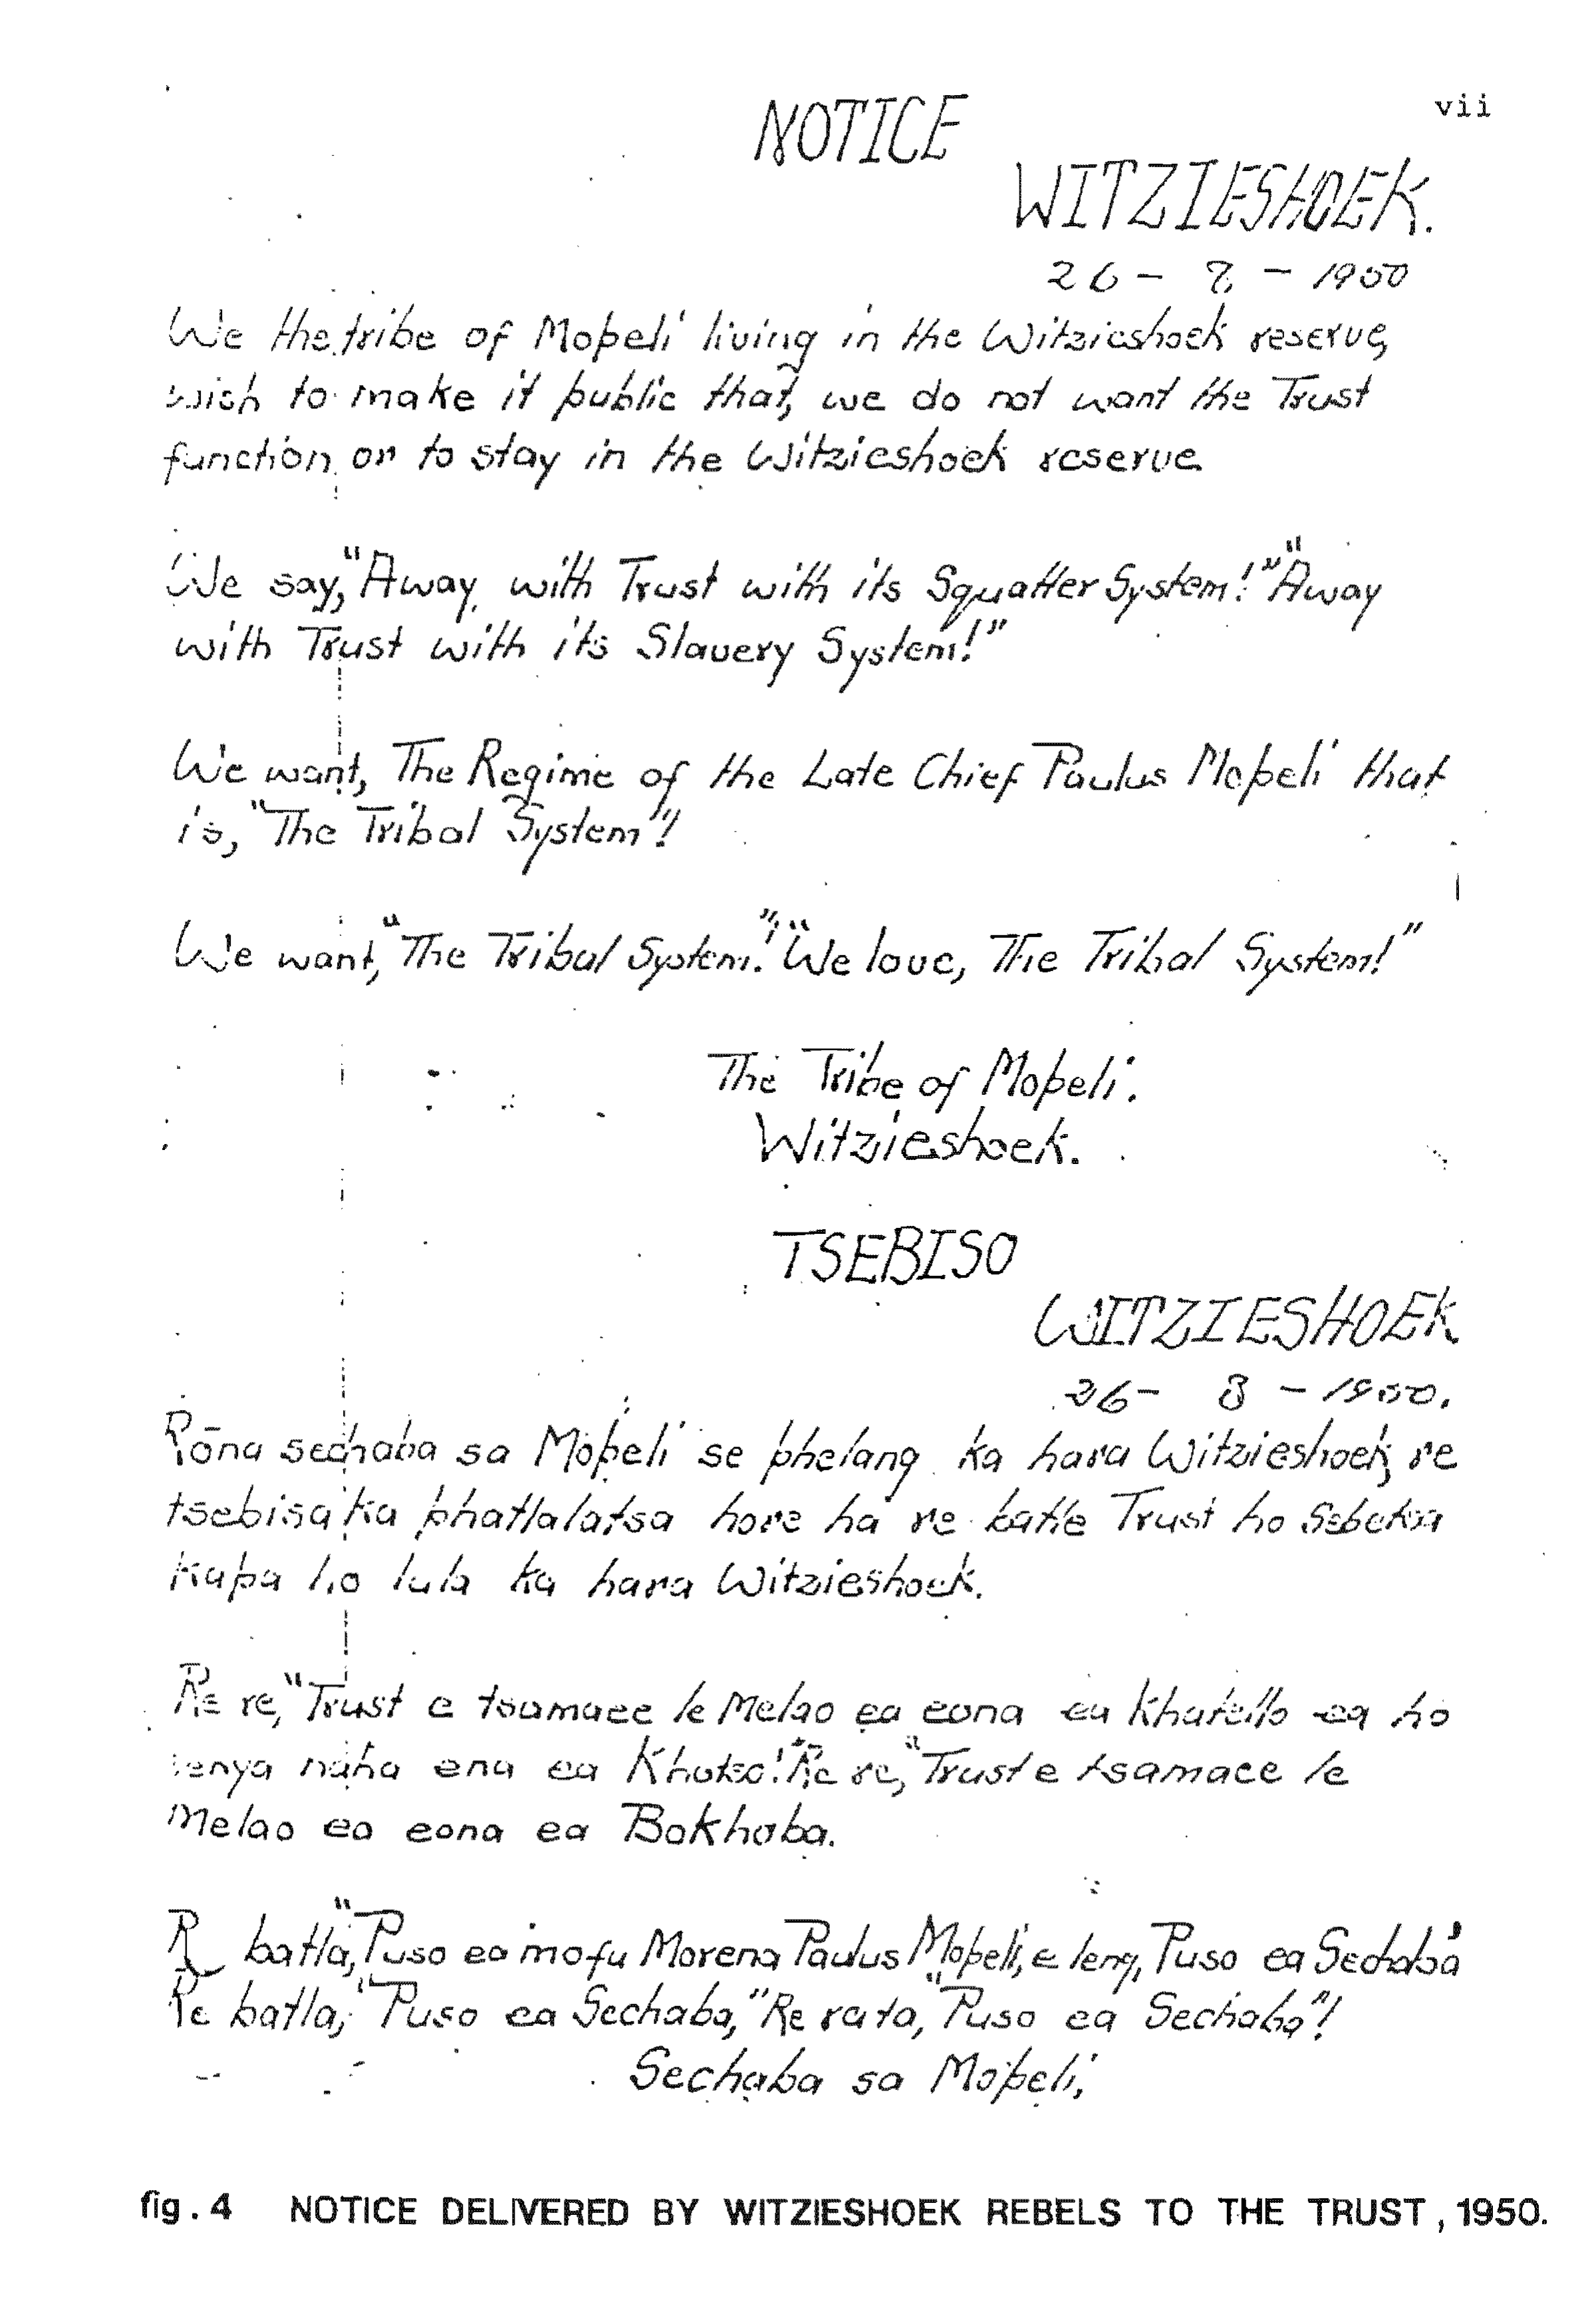 vii
NOTICE
WITZIESHOEK.
26 - 8 - 1950
We the tribe of Mopeli living in the Witzieshoek reserve,
wish to make it public that, we do not want the Trust
function or to stay in the Witzieshoek reserve
We say, "Away with Trust with its Squatter System!" "Away
with Trust with its Slavery System!"
We want, The Regime of the Late Chief Paulus Mopeli that
is, "The Tribal System"!
We want, "The Tribal System!" "We love, The Tribal System!"
The Tribe of Mopeli.
Witzieshoek.
TSEBISO
WITZIESHOEK
26 - 8 - 1950.
Rōna sechaba sa Mopeli se phelang ka hara Witzieshoek, re
tsebisa ka phatlalatsa hore ha re batle Trust ho sebetsa
kapa ho lula ka hara Witzieshoek.
Re re, "Trust e tsamaee le Melao ea eona ea Khatello ea ho
senya naha ena ea Khotso! "Re re, "Trust e tsamaee le
Melao ea eona ea Bokhoba.
R batla, "Puso ea mofu Morena Paulus Mopeli, e leng, Puso ea Sechaba
Re batla, "Puso ea Sechaba," Re rata, "Puso ea Sechaba"!
Sechaba sa Mopeli,
fig. 4 NOTICE DELIVERED BY WITZIESHOEK REBELS TO THE TRUST, 1950.